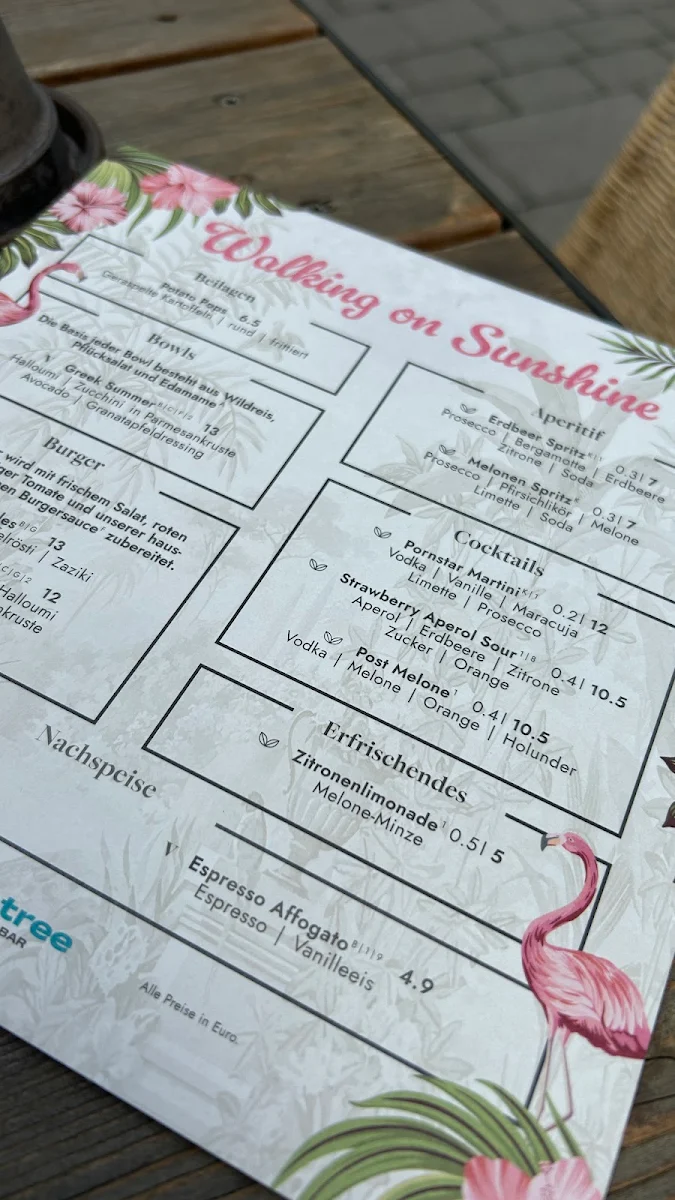 Walking on Sunshine
Beilagen
Potato Pops 6.5
Geraspelte Kartoffeln | rund | frittiert
Bowls
Die Basis jeder Bowl besteht aus Wildreis,
Pflücksalat und Edamame
V Greek Summer 13
Halloumi | Zucchini in Parmesankruste
Avocado | Granatapfeldressing
Burger
wird mit frischem Salat, roten
ger Tomate und unserer haus-
en Burgersauce zubereitet.
les B|G 13
elrösti | Zaziki
C|G|2 12
Halloumi
nkruste
Aperitif
Erdbeer Spritz 0.3l 7
Prosecco | Bergamotte | Erdbeere
Zitrone | Soda
Melonen Spritz 0.3l 7
Prosecco | Pfirsichlikör | Melone
Limette | Soda
Cocktails
Pornstar Martini 0.2l 12
Vodka | Vanille | Maracuja
Limette | Prosecco
Strawberry Aperol Sour 1|8 0.4l 10.5
Aperol | Erdbeere | Zitrone
Zucker | Orange
Post Melone 1 0.4l 10.5
Vodka | Melone | Orange | Holunder
Erfrischendes
Zitronenlimonade 1 0.5l 5
Melone-Minze
Nachspeise
V Espresso Affogato B|1|9 4.9
Espresso | Vanilleeis
tree
BAR
Alle Preise in Euro.